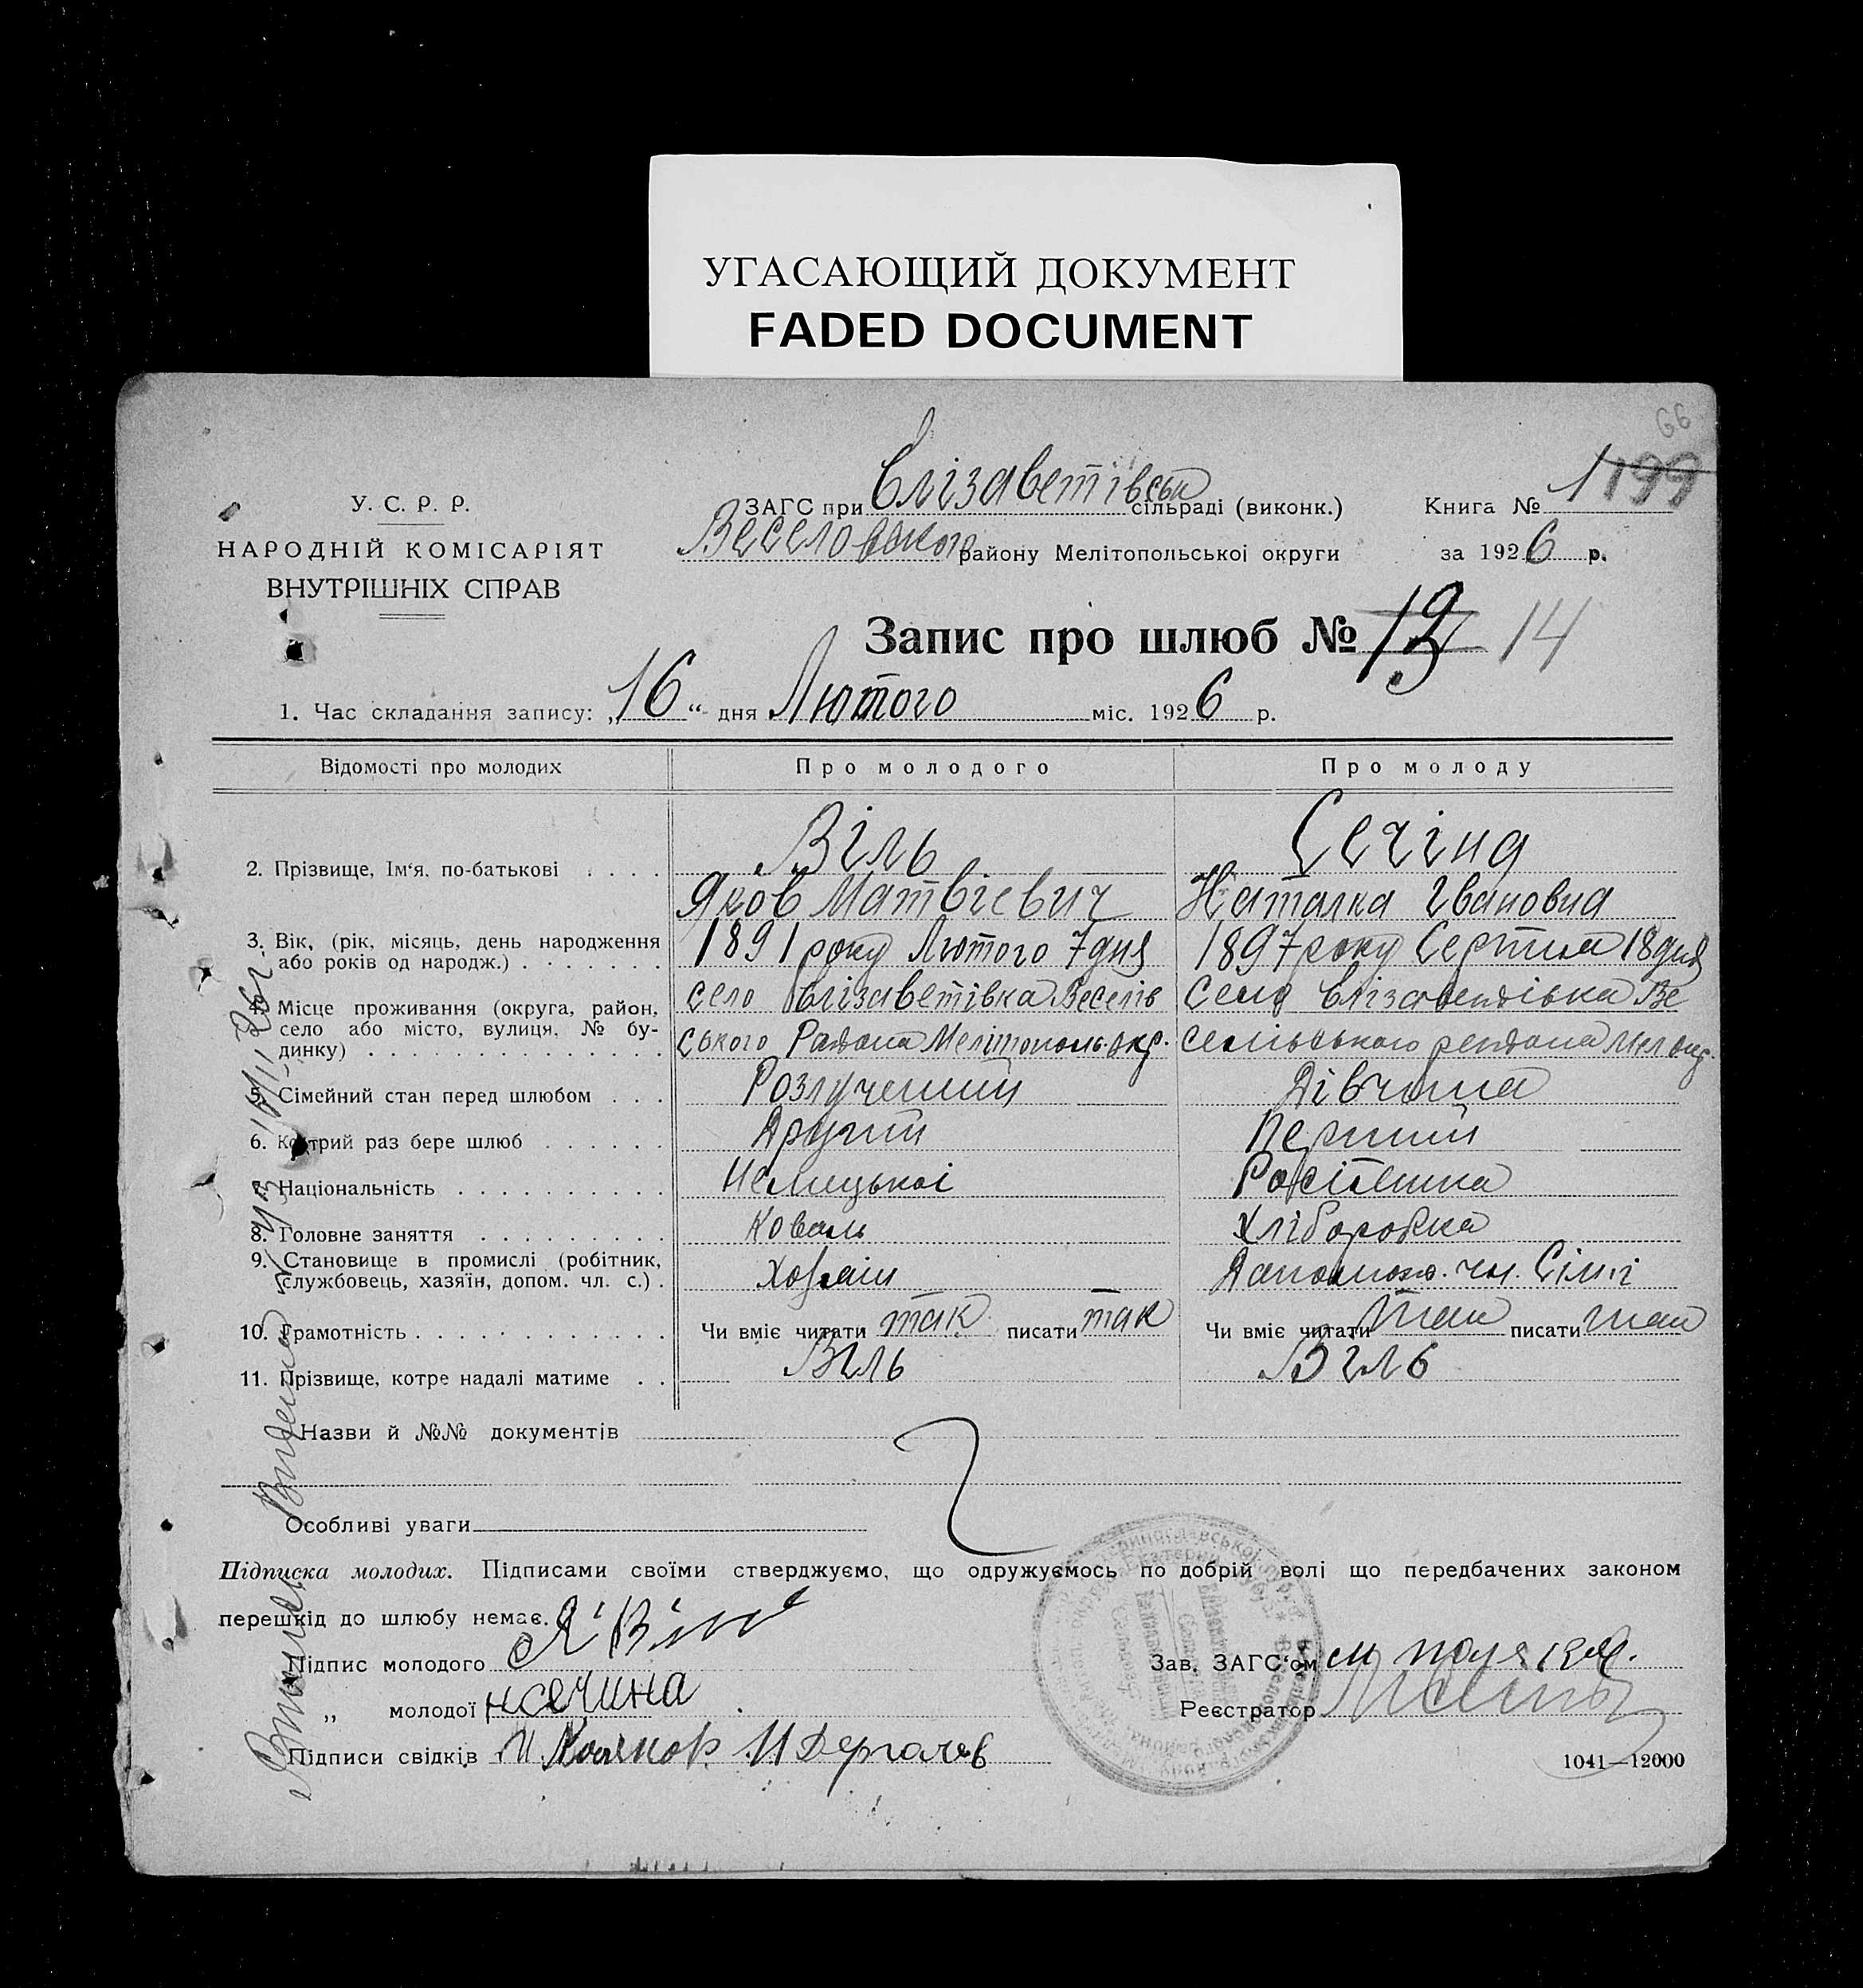 УГАСАЮЩИЙ ДОКУМЕНТ
FADED DOCUMENT
66
У. С. Р. Р.
НАРОДНІЙ КОМІСАРІЯТ
ВНУТРІШНІХ СПРАВ
ЗАГС при Єлізаветівськ сільраді (виконк.)
Веселовского району Мелітопольської округи
Книга № 1 199
за 1926 р.
Запис про шлюб № 13 14
1. Час складання запису: „16“ дня Лютого міс. 1926 р.
Відомості про молодих Про молодого Про молоду
2. Прізвище, Ім‘я. по-батькові Віль Сечіна
Яков Матвієвич Наталка Івановна
3. Вік, (рік, місяць, день народження 1891 року Лютого 7 дня 1897 року Серпня 18 дня
або років од народж.)
4. Місце проживання (округа, район, село Єлізаветівка Веселів Село Єлізаветівка Ве
село або місто, вулиця, № бу-
динку) ського Района Мелітополь. окр. селівського района Мел окр.
5. Сімейний стан перед шлюбом Розлучений Дівчина
6. Котрий раз бере шлюб Другий Перший
7. Національність Немецької Росіянка
8. Головне заняття Коваль Хліборобка
9. Становище в промислі (робітник,
службовець, хазяїн, допом. чл. с.) Хозяїн Допомож. чл. Сімї
10. Грамотність Чи вміє читати так писати так Чи вміє читати так писати так
11. Прізвище, котре надалі матиме Віль Віль
Назви й №№ документів
Особливі уваги
Підписка молодих. Підписами своїми стверджуємо, що одружуємось по добрій волі що передбачених законом
перешкід до шлюбу немає.
Підпис молодого Я Віль
„ молодої Н Сечина
Підписи свідків И Дергачев
Зав. ЗАГС‘ом
Реєстратор
1041—12000